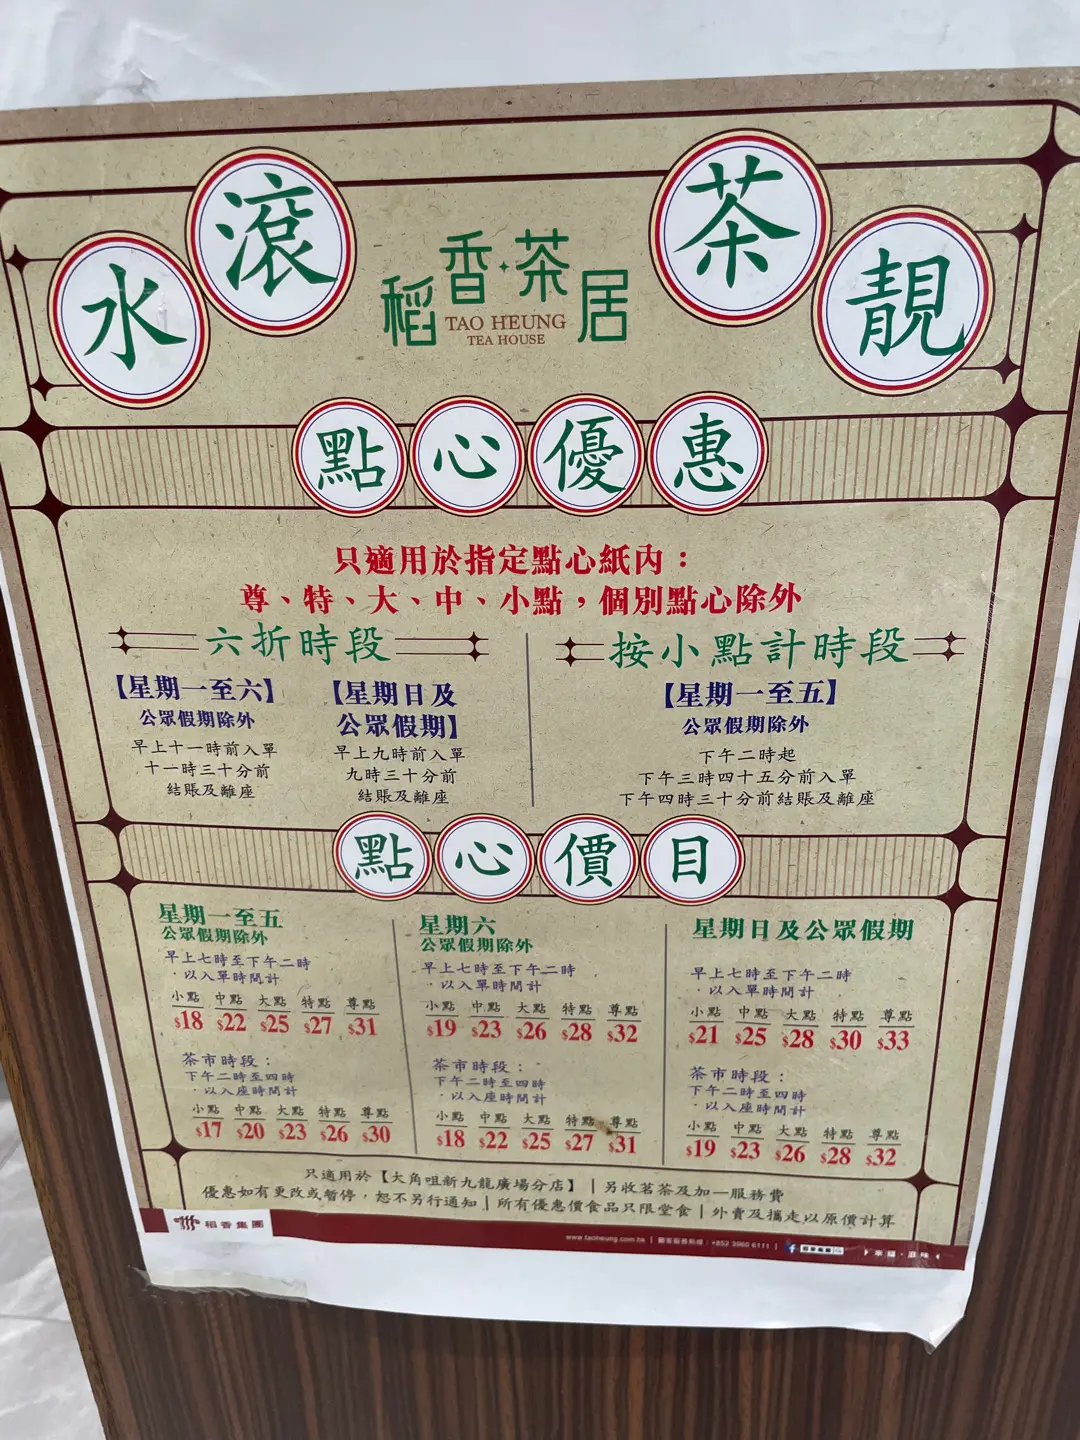 水滾茶靚
稻香·茶居
TAO HEUNG
TEA HOUSE
點心優惠
只適用於指定點心紙內：
尊、特、大、中、小點，個別點心除外
六折時段
【星期一至六】
公眾假期除外
早上十一時前入單
十一時三十分前
結賬及離座
【星期日及
公眾假期】
早上九時前入單
九時三十分前
結賬及離座
按小點計時段
【星期一至五】
公眾假期除外
下午二時起
下午三時四十五分前入單
下午四時三十分前結賬及離座
點心價目
星期一至五
公眾假期除外
早上七時至下午二時
·以入單時間計
小點 中點 大點 特點 尊點
$18 $22 $25 $27 $31
茶市時段：
下午二時至四時
·以入座時間計
小點 中點 大點 特點 尊點
$17 $20 $23 $26 $30
星期六
公眾假期除外
早上七時至下午二時
·以入單時間計
小點 中點 大點 特點 尊點
$19 $23 $26 $28 $32
茶市時段：
下午二時至四時
·以入座時間計
小點 中點 大點 特點 尊點
$18 $22 $25 $27 $31
星期日及公眾假期
早上七時至下午二時
·以入單時間計
小點 中點 大點 特點 尊點
$21 $25 $28 $30 $33
茶市時段：
下午二時至四時
·以入座時間計
小點 中點 大點 特點 尊點
$19 $23 $26 $28 $32
只適用於【大角咀新九龍廣場分店】 | 另收茗茶及加一服務費
優惠如有更改或暫停，恕不另行通知 | 所有優惠價食品只限堂食 | 外賣及攜走以原價計算
稻香集團
www.taoheung.com.hk | 顧客服務熱線：+852 3960 6111 |
稻香集團
幸福·滋味